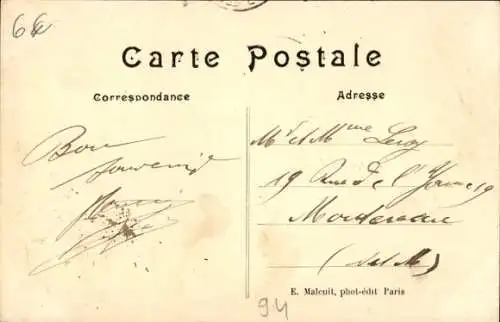 6€
Carte Postale
Correspondance
Adresse
Bon
souvenir
Mr et Mme Leroy
19 Rue de l'Yonne 19
(S et M)
E. Malcuit, phot-édit Paris
94